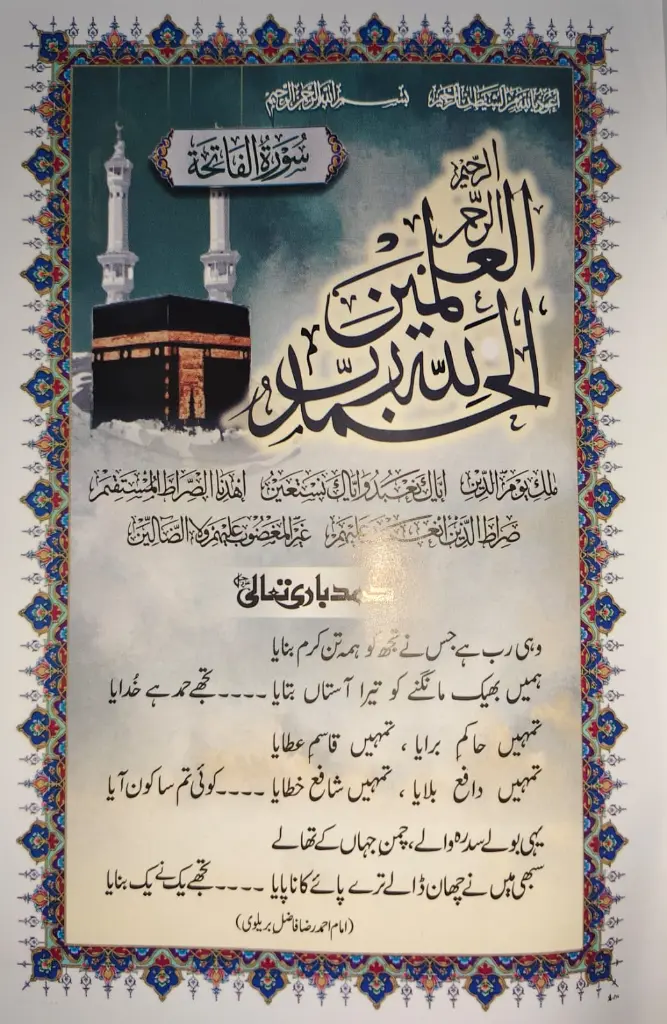 اعوذ بالله من الشيطان الرجيم بسم الله الرحمن الرحيم
سُورَةُ الفَاتِحَة
الحمد لله رب العلمين الرحمن الرحيم
ملك يوم الدين اياك نعبد واياك نستعين اهدنا الصراط المستقيم
صراط الذين انعمت عليهم غير المغضوب عليهم ولا الضالين
حمد باری تعالیٰ
وہی رب ہے جس نے تجھ کو ہمہ تن کرم بنایا
ہمیں بھیک مانگنے کو تیرا آستاں بتایا ۔۔۔۔ تجھے حمد ہے خُدایا
تمہیں حاکمِ برایا ، تمہیں قاسمِ عطایا
تمہیں دافعِ بلایا ، تمہیں شافعِ خطایا ۔۔۔۔ کوئی تم سا کون آیا
یہی بولے سدرہ والے، چمنِ جہاں کے تھالے
سبھی میں نے چھان ڈالے ترے پائے کا نا پایا ۔۔۔۔ تجھے یک نے یک بنایا
(امام احمد رضا فاضل بریلوی)